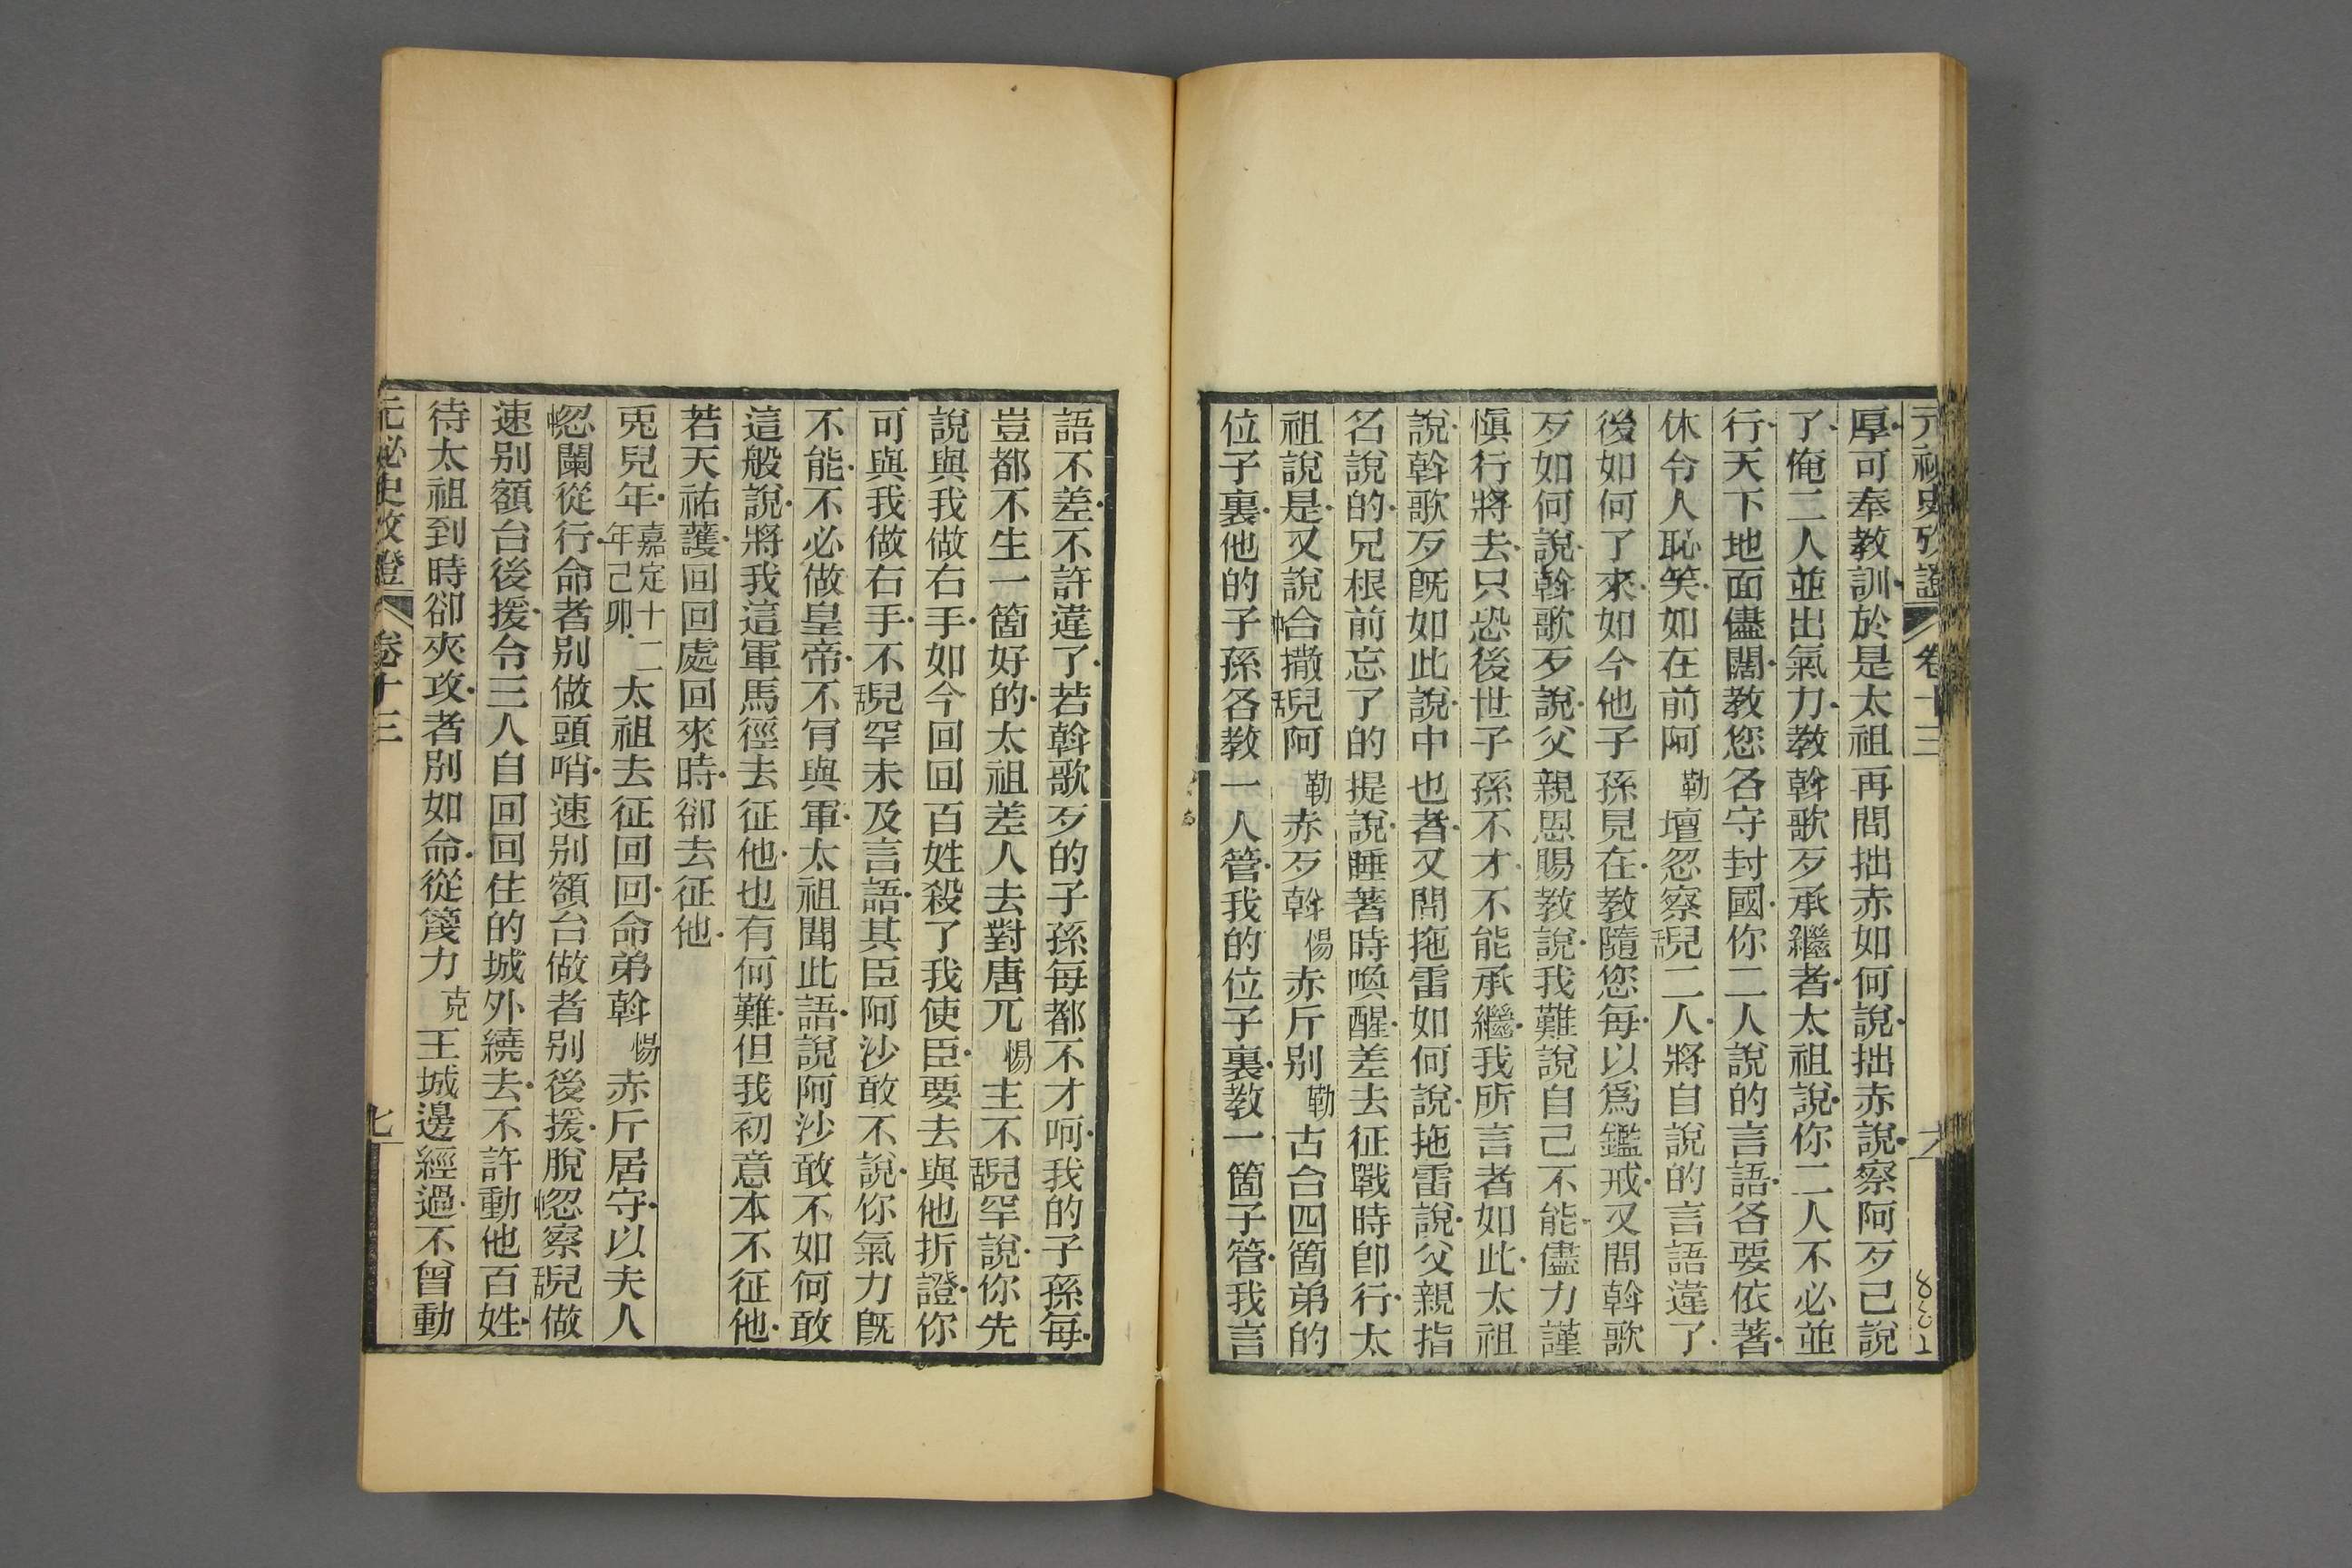 元祕史攷證 卷十三 六
8601
厚可奉教訓於是太祖再問拙赤如何說拙赤說察阿歹己說
了俺二人並出氣力教斡歌歹承繼者太祖說你二人不必並
行天下地面儘闊教您各守封國你二人說的言語各要依著
休令人恥笑如在前阿勒壇忽察舌兒二人將自說的言語違了
後如何了來如今他子孫見在教隨您每以爲鑑戒又問斡歌
歹如何說斡歌歹說父親恩賜教說我難說自己不能儘力謹
愼行將去只恐後世子孫不才不能承繼我所言者如此太祖
說斡歌歹旣如此說中也者又問拖雷如何說拖雷說父親指
名說的兄根前忘了的提說睡著時喚醒差去征戰時卽行太
祖說是又說中合撒舌兒阿勒赤歹斡惕赤斤别勒古台四箇弟的
位子裏他的子孫各教一人管我的位子裏教一箇子管我言
語不差不許違了若斡歌歹的子孫每都不才呵我的子孫每
豈都不生一箇好的太祖差人去對唐兀惕主不舌兒罕說你先
說與我做右手如今回回百姓殺了我使臣要去與他折證你
可與我做右手不舌兒罕未及言語其臣阿沙敢不說你氣力旣
不能不必做皇帝不肎與軍太祖聞此語說阿沙敢不如何敢
這般說將我這軍馬徑去征他也有何難但我初意本不征他
若天祐護回回處回來時卻去征他
兎兒年嘉定十二年己卯太祖去征回回命弟斡惕赤斤居守以夫人
中忽闌從行命者别做頭哨速别額台做者别後援脫中忽察舌兒做
速别額台後援令三人自回回住的城外繞去不許動他百姓
待太祖到時卻夾攻者别如命從篾力克王城邊經過不曾動
元祕史攷證 卷十三 七